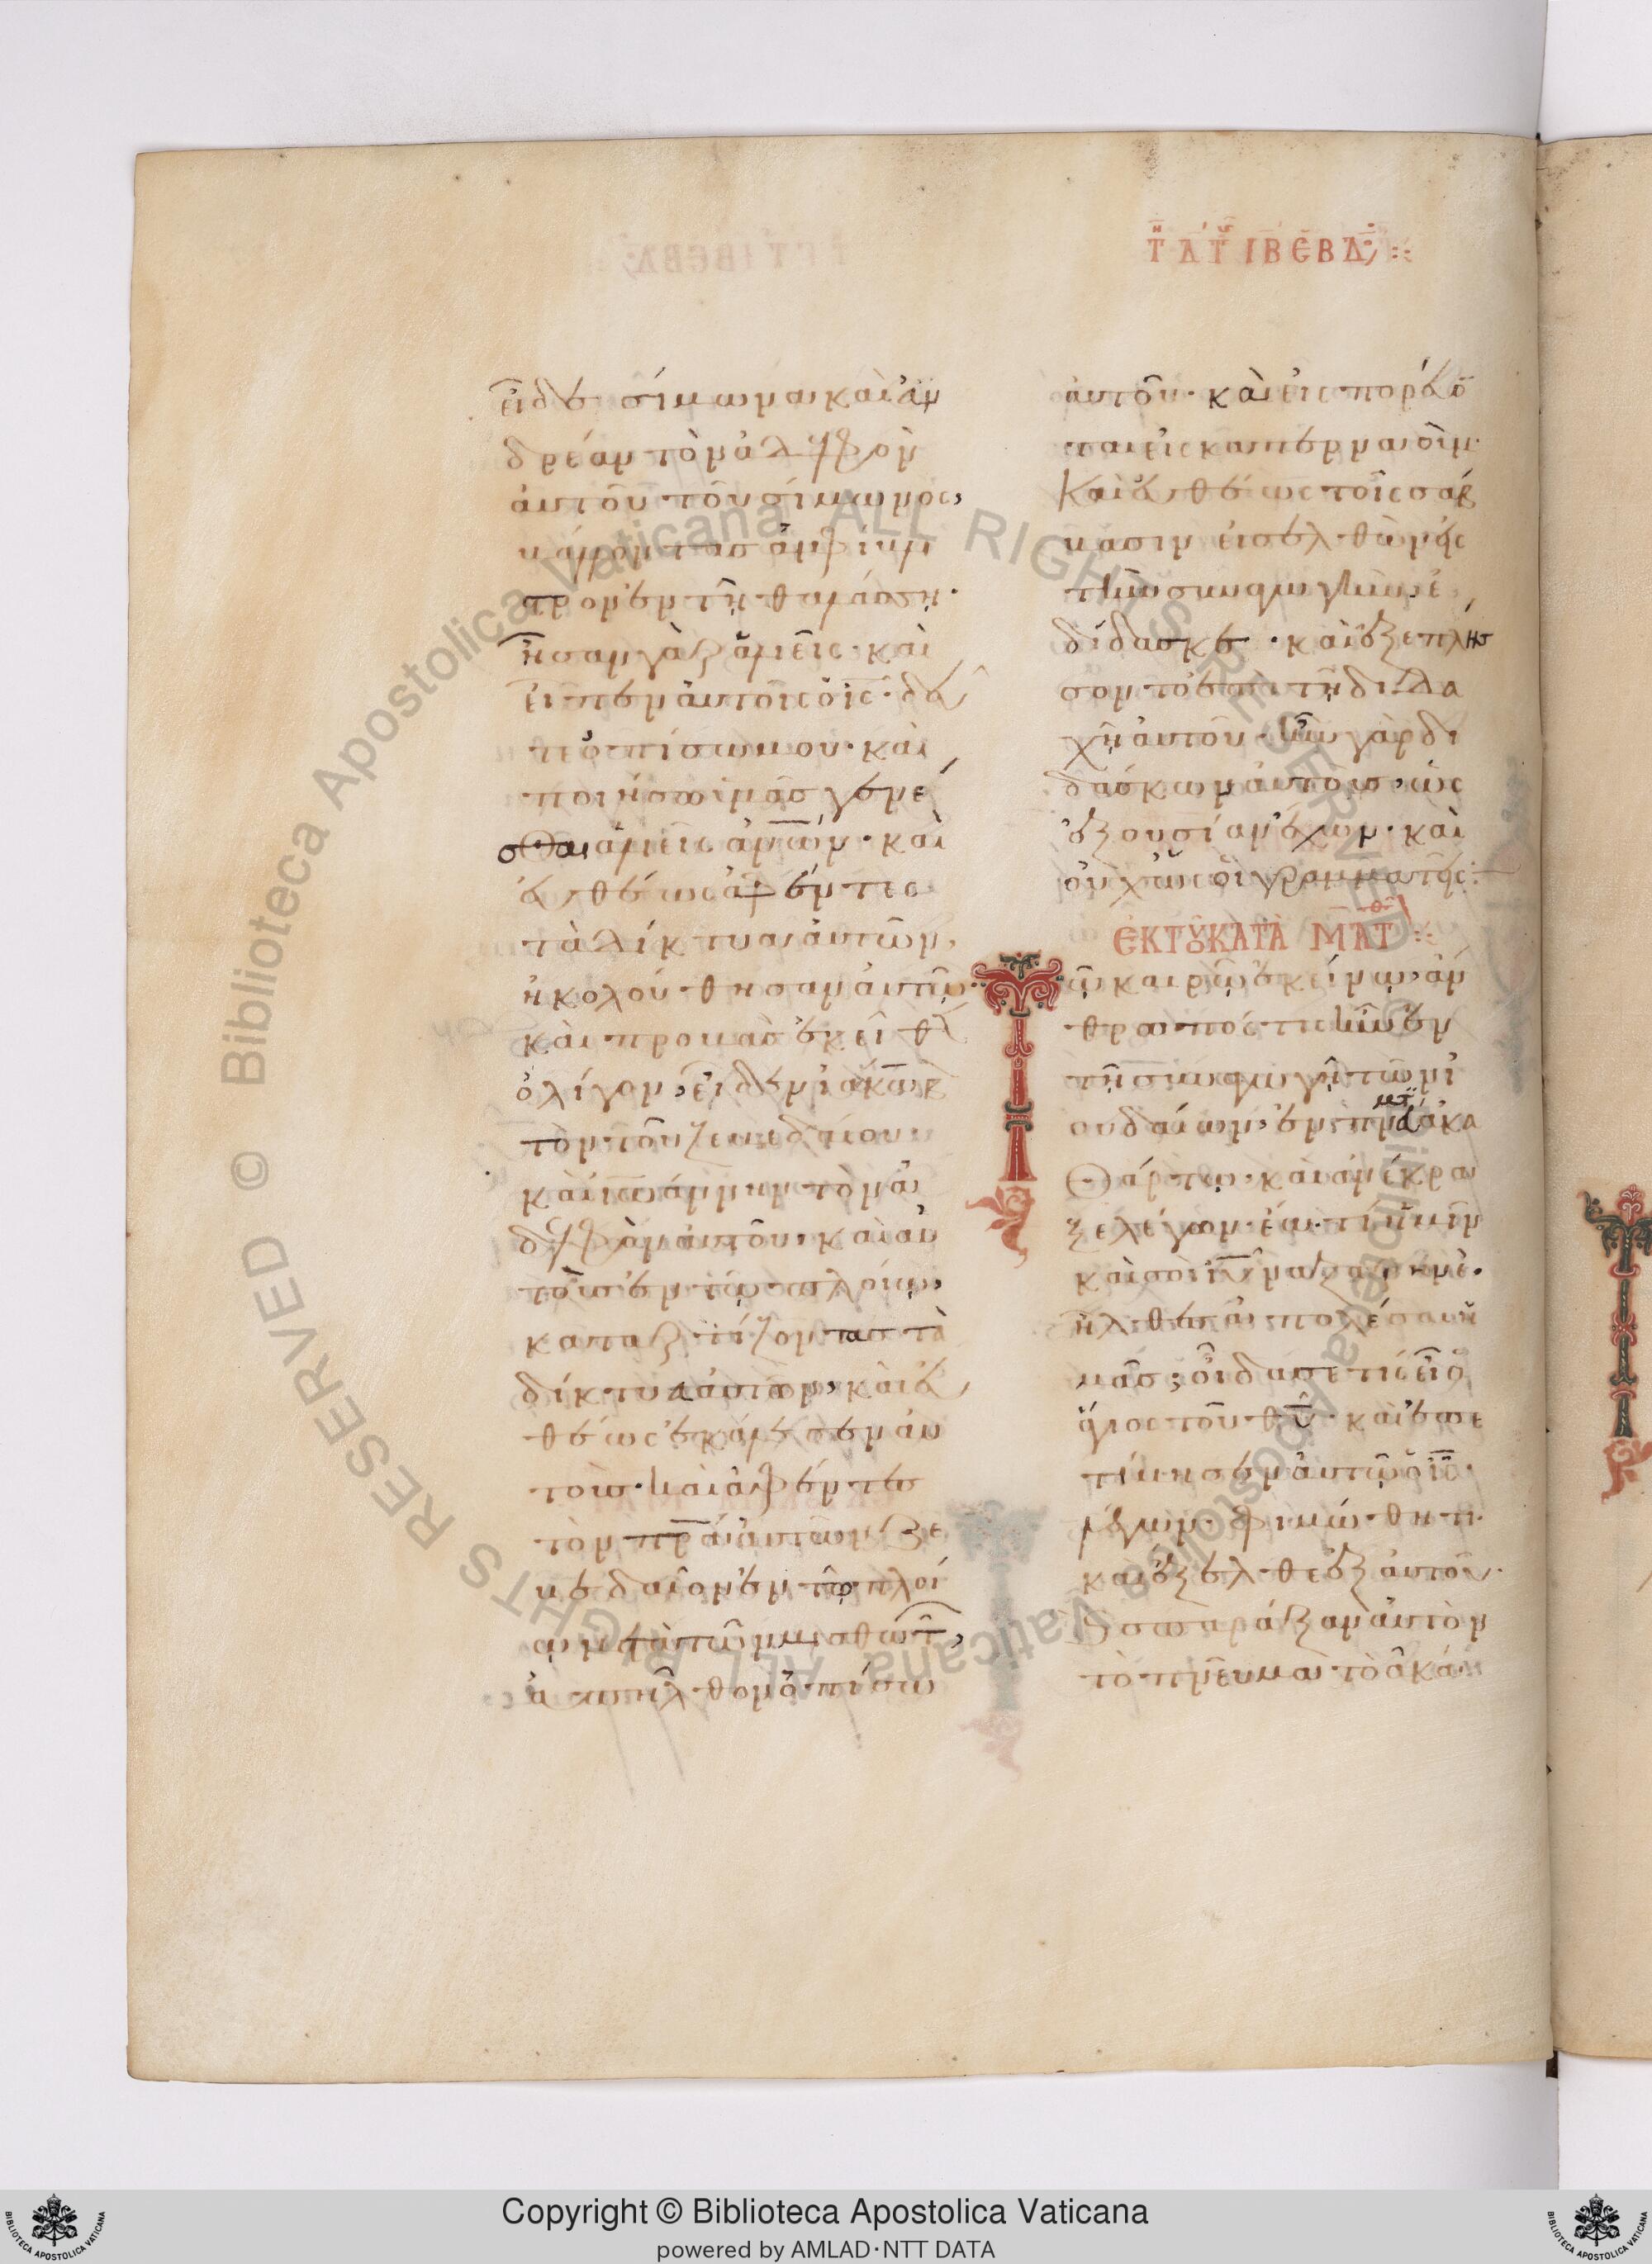 Τῇ Δ Τῆς ΙΒ ΕΒΔ
εἶδε σίμωνα καὶ ἀν
δρέαν τὸν ἀδελφὸν
αὐτοῦ τοῦ σίμωνος,
βάλλοντας ἀμφίβλη
στρον ἐν τῇ θαλάσσῃ·
ἦσαν γὰρ ἁλιεῖς· καὶ
εἶπεν αὐτοῖς ὁ ις· δεῦ
τε ὀπίσω μου· καὶ
ποιήσω ὑμᾶς γενέ
σθαι ἁλιεῖς ἀνων· καὶ
εὐθέως ἀφέντες
τὰ δίκτυα αὐτῶν,
ἠκολούθησαν αὐτῷ·
καὶ προβὰς ἐκεῖθεν
ὀλίγον, εἶδεν ἰάκωβ
τὸν τοῦ ζεβεδαίου
καὶ ἰωάννην τὸν ἀ
δελφὸν αὐτοῦ, καὶ αὐ
τοὺς ἐν τῷ πλοίῳ,
καταρτίζοντας τὰ
δίκτυα αὐτῶν, καὶ εὐ
θέως ἐκάλεσεν αὐ
τούς· καὶ ἀφέντες
τὸν πρα αὐτῶν ζε
βεδαῖον ἐν τῷ πλοί
ῳ μετὰ τῶν μισθωτ,
ἀπῆλθον ὀπίσω
αὐτοῦ· καὶ εἰσπορεύο
ται εἰς καπερναούμ·
Καὶ εὐθέως τοῖς σάβ
βασιν εἰσελθὼν εἰς
τὴν συναγωγὴν, ἐ
δίδασκε· καὶ ἐξεπλήσ
σοντο ἐπὶ τῇ διδα
χῇ αὐτοῦ· ἦν γὰρ δι
δάσκων αὐτοὺς, ὡς
ἐξουσίαν ἔχων· καὶ
οὐχ ὡς οἱ γραμματεῖς:
ἘΚ ΤΟΥ ΚΑΤΑ ΜΑΤΘ
Τῷ καιρῷ ἐκείνῳ, ἄν
θρωπός τις ἦν ἐν
τῇ συναγωγῇ τῶν ἰ
ουδαίων, ἐν πνατι ἀκα
θάρτῳ· καὶ ἀνέκρα
ξε λέγων· ἔα· τί ἡμῖν
καὶ σοὶ ιυ ναζαρηνέ·
ἦλθες ἀπολέσαι ἡ
μᾶς; οἶδά σε τίς εἶ ὁ
ἅγιος τοῦ θυ· καὶ ἐπε
τίμησεν αὐτῷ ὁ ις
λέγων· φιμώθητι·
καὶ ἔξελθε ἐξ αὐτοῦ·
σπαράξαν αὐτὸν
τὸ πνεῦμα τὸ ἀκά
© Biblioteca Apostolica Vaticana ALL RIGHTS RESERVED
© Biblioteca Apostolica Vaticana ALL RIGHTS RESERVED
BIBLIOTECA APOSTOLICA VATICANA
Copyright © Biblioteca Apostolica Vaticana
powered by AMLAD·NTT DATA
BIBLIOTECA APOSTOLICA VATICANA